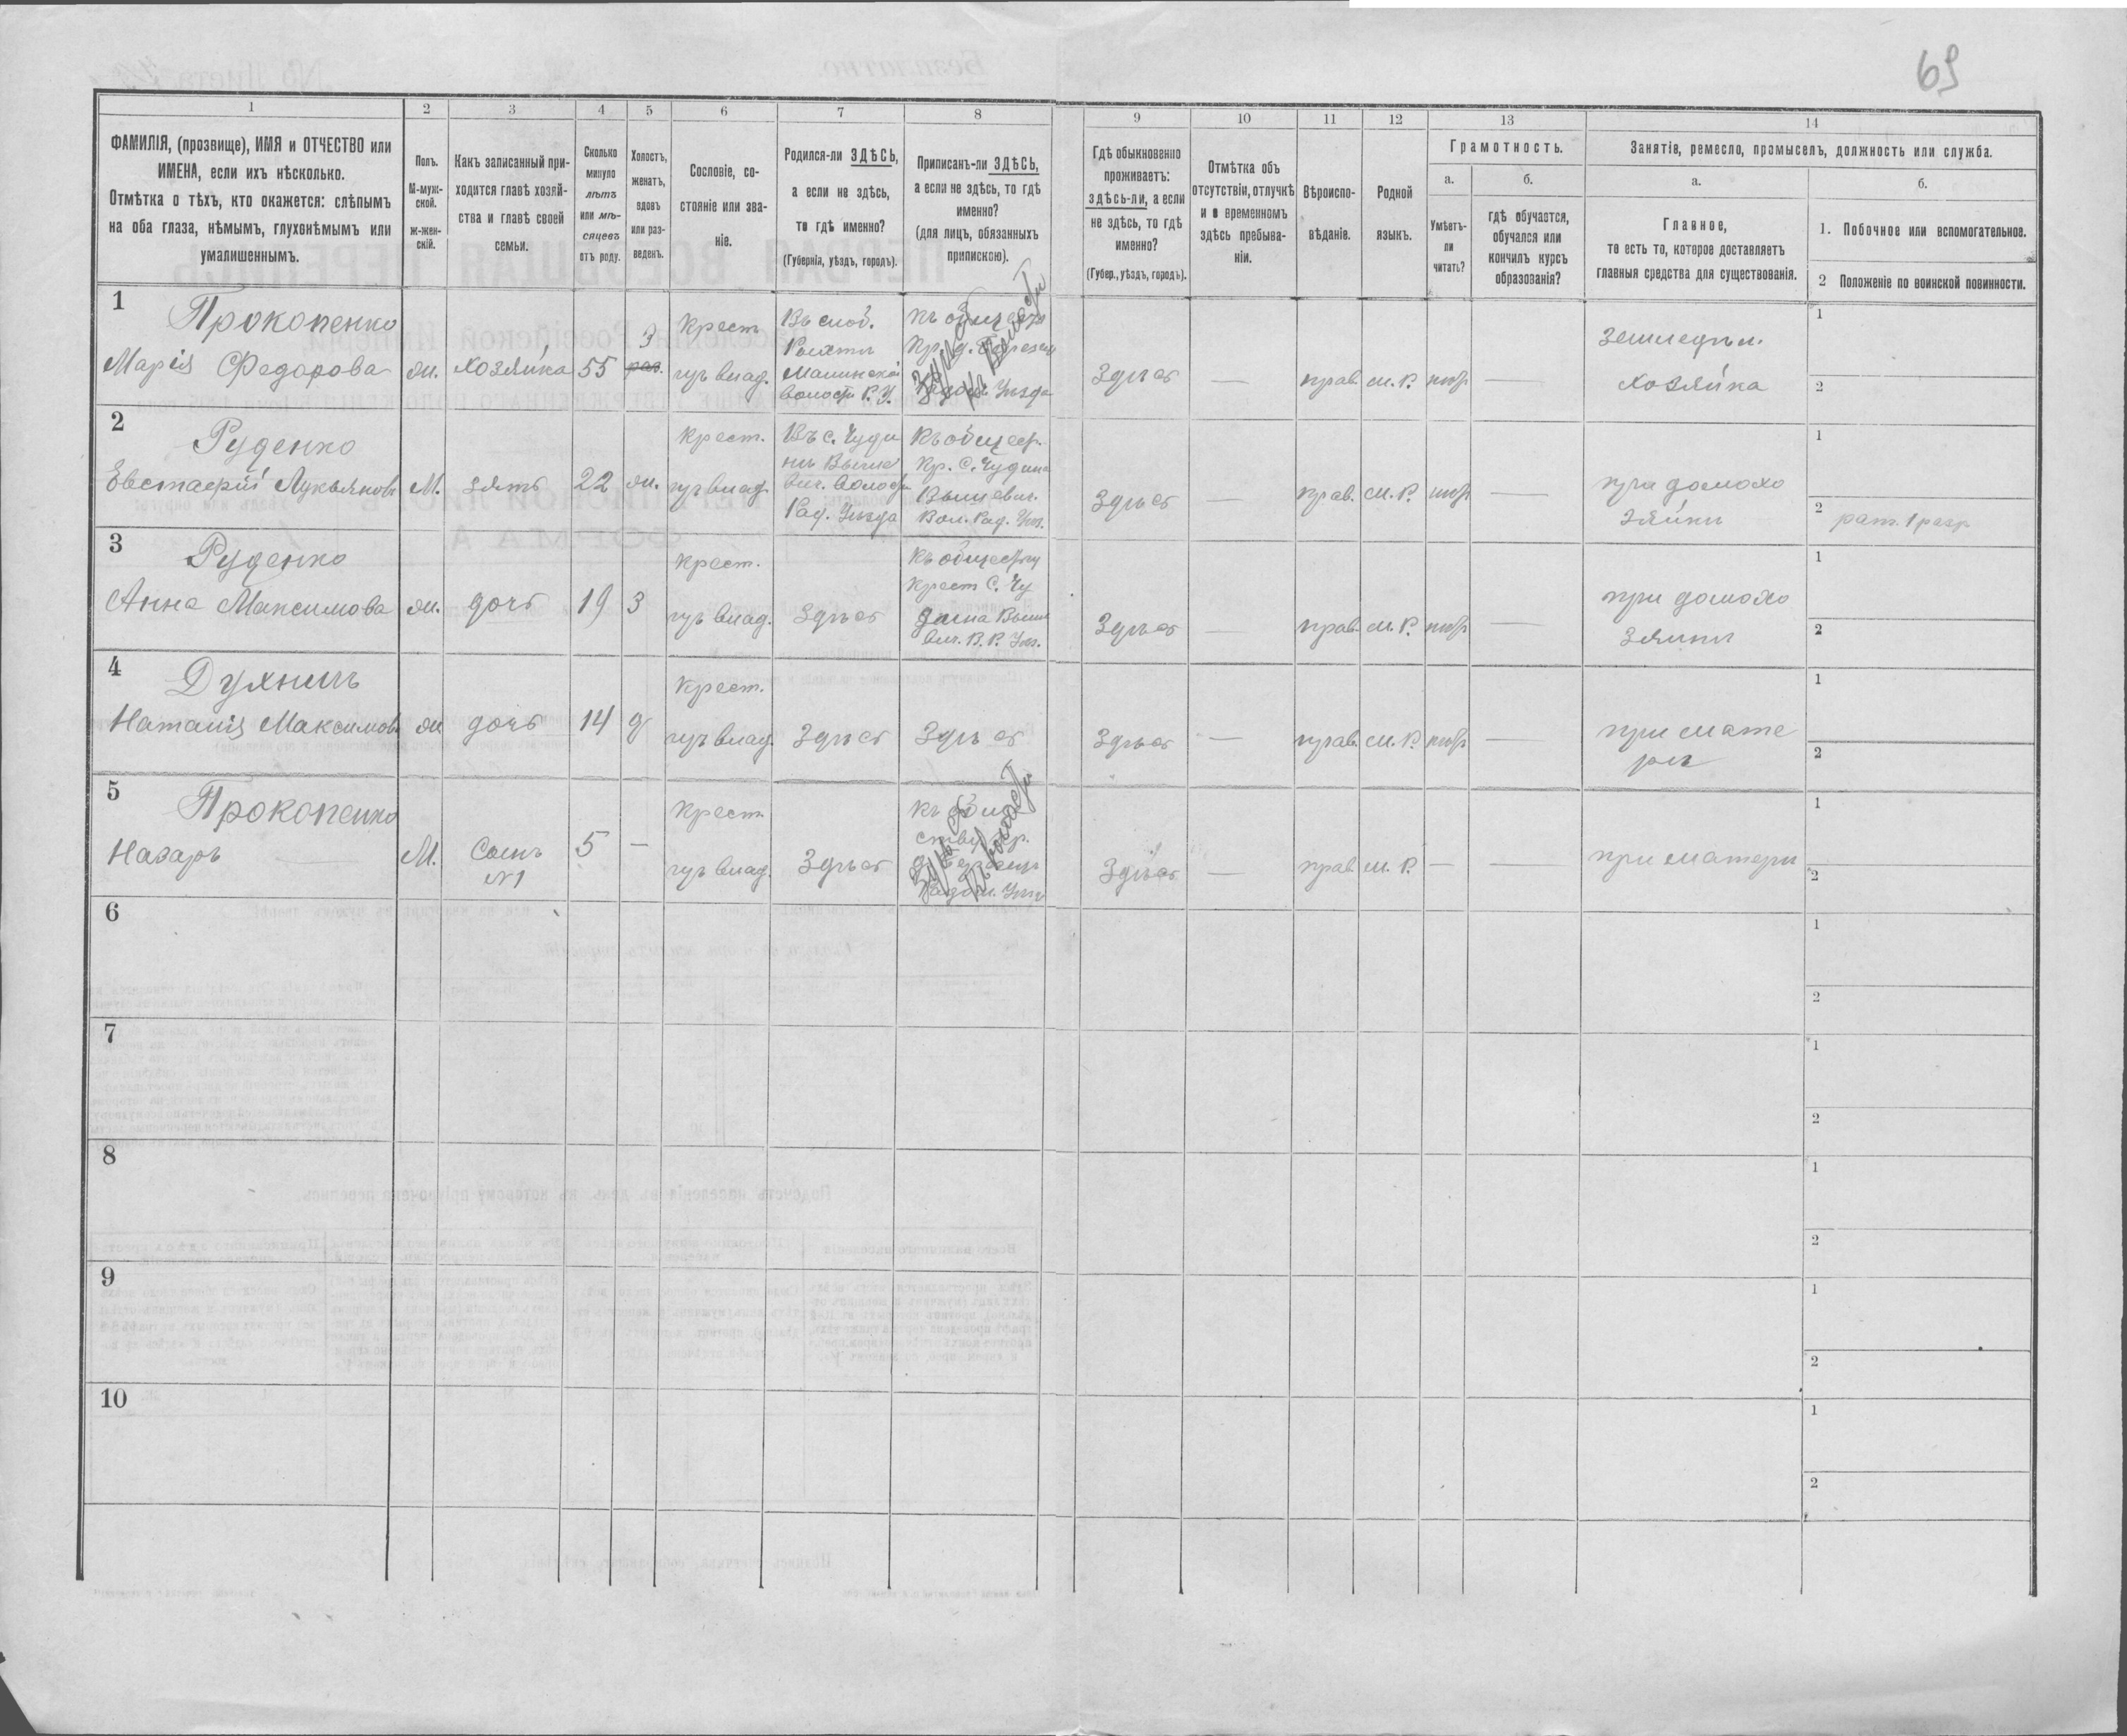 69
1
2
3
4
5
6
7
8
9
10
11
12
13
14
ФАМИЛІЯ, (прозвище), ИМЯ и ОТЧЕСТВО или
ИМЕНА, если ихъ нѣсколько.
Отмѣтка о тѣхъ, кто окажется: слѣпымъ
на оба глаза, нѣмымъ, глухонѣмымъ или
умалишеннымъ.
Полъ.
М-муж-
ской.
ж-жен-
скій.
Какъ записанный при-
ходится главѣ хозяй-
ства и главѣ своей
семьи.
Сколько
минуло
лѣтъ
или мѣ-
сяцевъ
отъ роду.
Холостъ,
женатъ,
вдовъ
или раз-
веденъ.
Сословіе, со-
стояніе или зва-
ніе.
Родился-ли ЗДѢСЬ,
а если не здѣсь,
то гдѣ именно?
(Губернія, уѣздъ, городъ).
Приписанъ-ли ЗДѢСЬ,
а если не здѣсь, то гдѣ
именно?
(для лицъ, обязанныхъ
припискою).
Гдѣ обыкновенно
проживаетъ:
ЗДѢСЬ-ЛИ, а если
не здѣсь, то гдѣ
именно?
(Губер., уѣздъ, городъ).
Отмѣтка объ
отсутствіи, отлучкѣ
и о временномъ
здѣсь пребыва-
ніи.
Вѣроиспо-
вѣданіе.
Родной
языкъ.
Грамотность.
а.
Умѣетъ-
ли
читать?
б.
гдѣ обучается,
обучался или
кончилъ курсъ
образованія?
Занятіе, ремесло, промыселъ, должность или служба.
а.
Главное,
то есть то, которое доставляетъ
главныя средства для существованія.
б.
1. Побочное или вспомогательное.
2 Положеніе по воинской повинности.
1
Прокопенко
Марія Федорова
ж.
хозяйка
55
З
крест
изъ влад.
Въ слоб.
Малинской
волост Р. У.
Здѣсь
—
прав.
м. Р.
—
земледѣл.
хозяйка
1
2
2
Руденко
Евстафій Лукьяновъ
М.
зять
22
ж.
крест.
изъ влад.
Въ с. Чуди
Рад. Уѣзда
Къ общест.
кр. с. Чудина
Вышевич.
Вол. Рад. Уѣз.
Здѣсь
—
прав.
м. Р.
—
при домохо
зяйкѣ
1
2 рат. 1 разр.
3
Руденко
Анна Максимова
ж.
дочь
19
З
крест.
изъ влад.
Здѣсь
Къ обществу
крест с. Чу
дина Выше
вич. В. Р. Уѣз.
Здѣсь
—
прав.
м. Р.
—
при домохо
зяинѣ
1
2
4
Духничъ
Наталія Максимов.
ж
дочь
14
д
Крест.
изъ влад.
Здѣсь
Здѣсь
Здѣсь
—
прав.
м. Р.
—
при мате
ри
1
2
5
Прокопенко
Назаръ
М.
Сынъ
№1
5
—
Крест.
изъ влад.
Здѣсь
Здѣсь
—
прав.
м. Р.
—
—
при матери
1
2
6
1
2
7
1
2
8
1
2
9
1
2
10
1
2